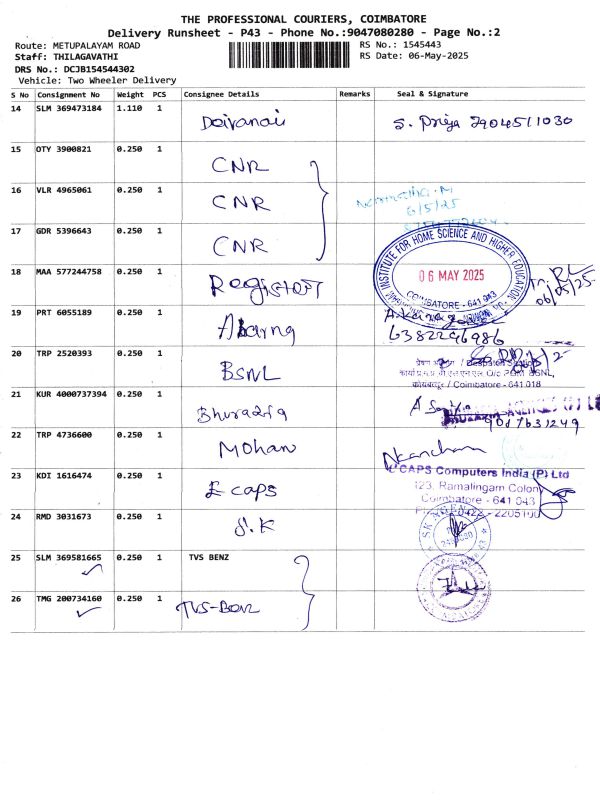 THE PROFESSIONAL COURIERS, COIMBATORE
Delivery Runsheet - P43 - Phone No.:9047080280 - Page No.:2
Route: METUPALAYAM ROAD
RS No.: 1545443
Staff: THILAGAVATHI
RS Date: 06-May-2025
DRS No.: DCJB154544302
Vehicle: Two Wheeler Delivery
S No Consignment No Weight PCS Consignee Details Remarks Seal & Signature
14 SLM 369473184 1.110 1 Deivanai S. Priya 7904511030
15 OTY 3900821 0.250 1 CNR
16 VLR 4965061 0.250 1 CNR
6/5/25
17 GDR 5396643 0.250 1 CNR
INSTITUTE FOR HOME SCIENCE AND HIGHER EDUCATION
06 MAY 2025
COIMBATORE - 641 043
18 MAA 577244758 0.250 1 Register
06/05/25
19 PRT 6055189 0.250 1
6382246986
20 TRP 2520393 0.250 1 BSNL
/ Despatch Section
O/o PGM BSNL,
/ Coimbatore - 641 018
21 KUR 4000737394 0.250 1
22 TRP 4736600 0.250 1 Mohan
CAPS Computers India (P) Ltd
23 KDI 1616474 0.250 1 E caps
123, Ramalingam Colony
Coimbatore - 641 043
24 RMD 3031673 0.250 1 S.K
25 SLM 369581665 0.250 1 TVS BENZ
26 TMG 200734160 0.250 1 TVS-Benz